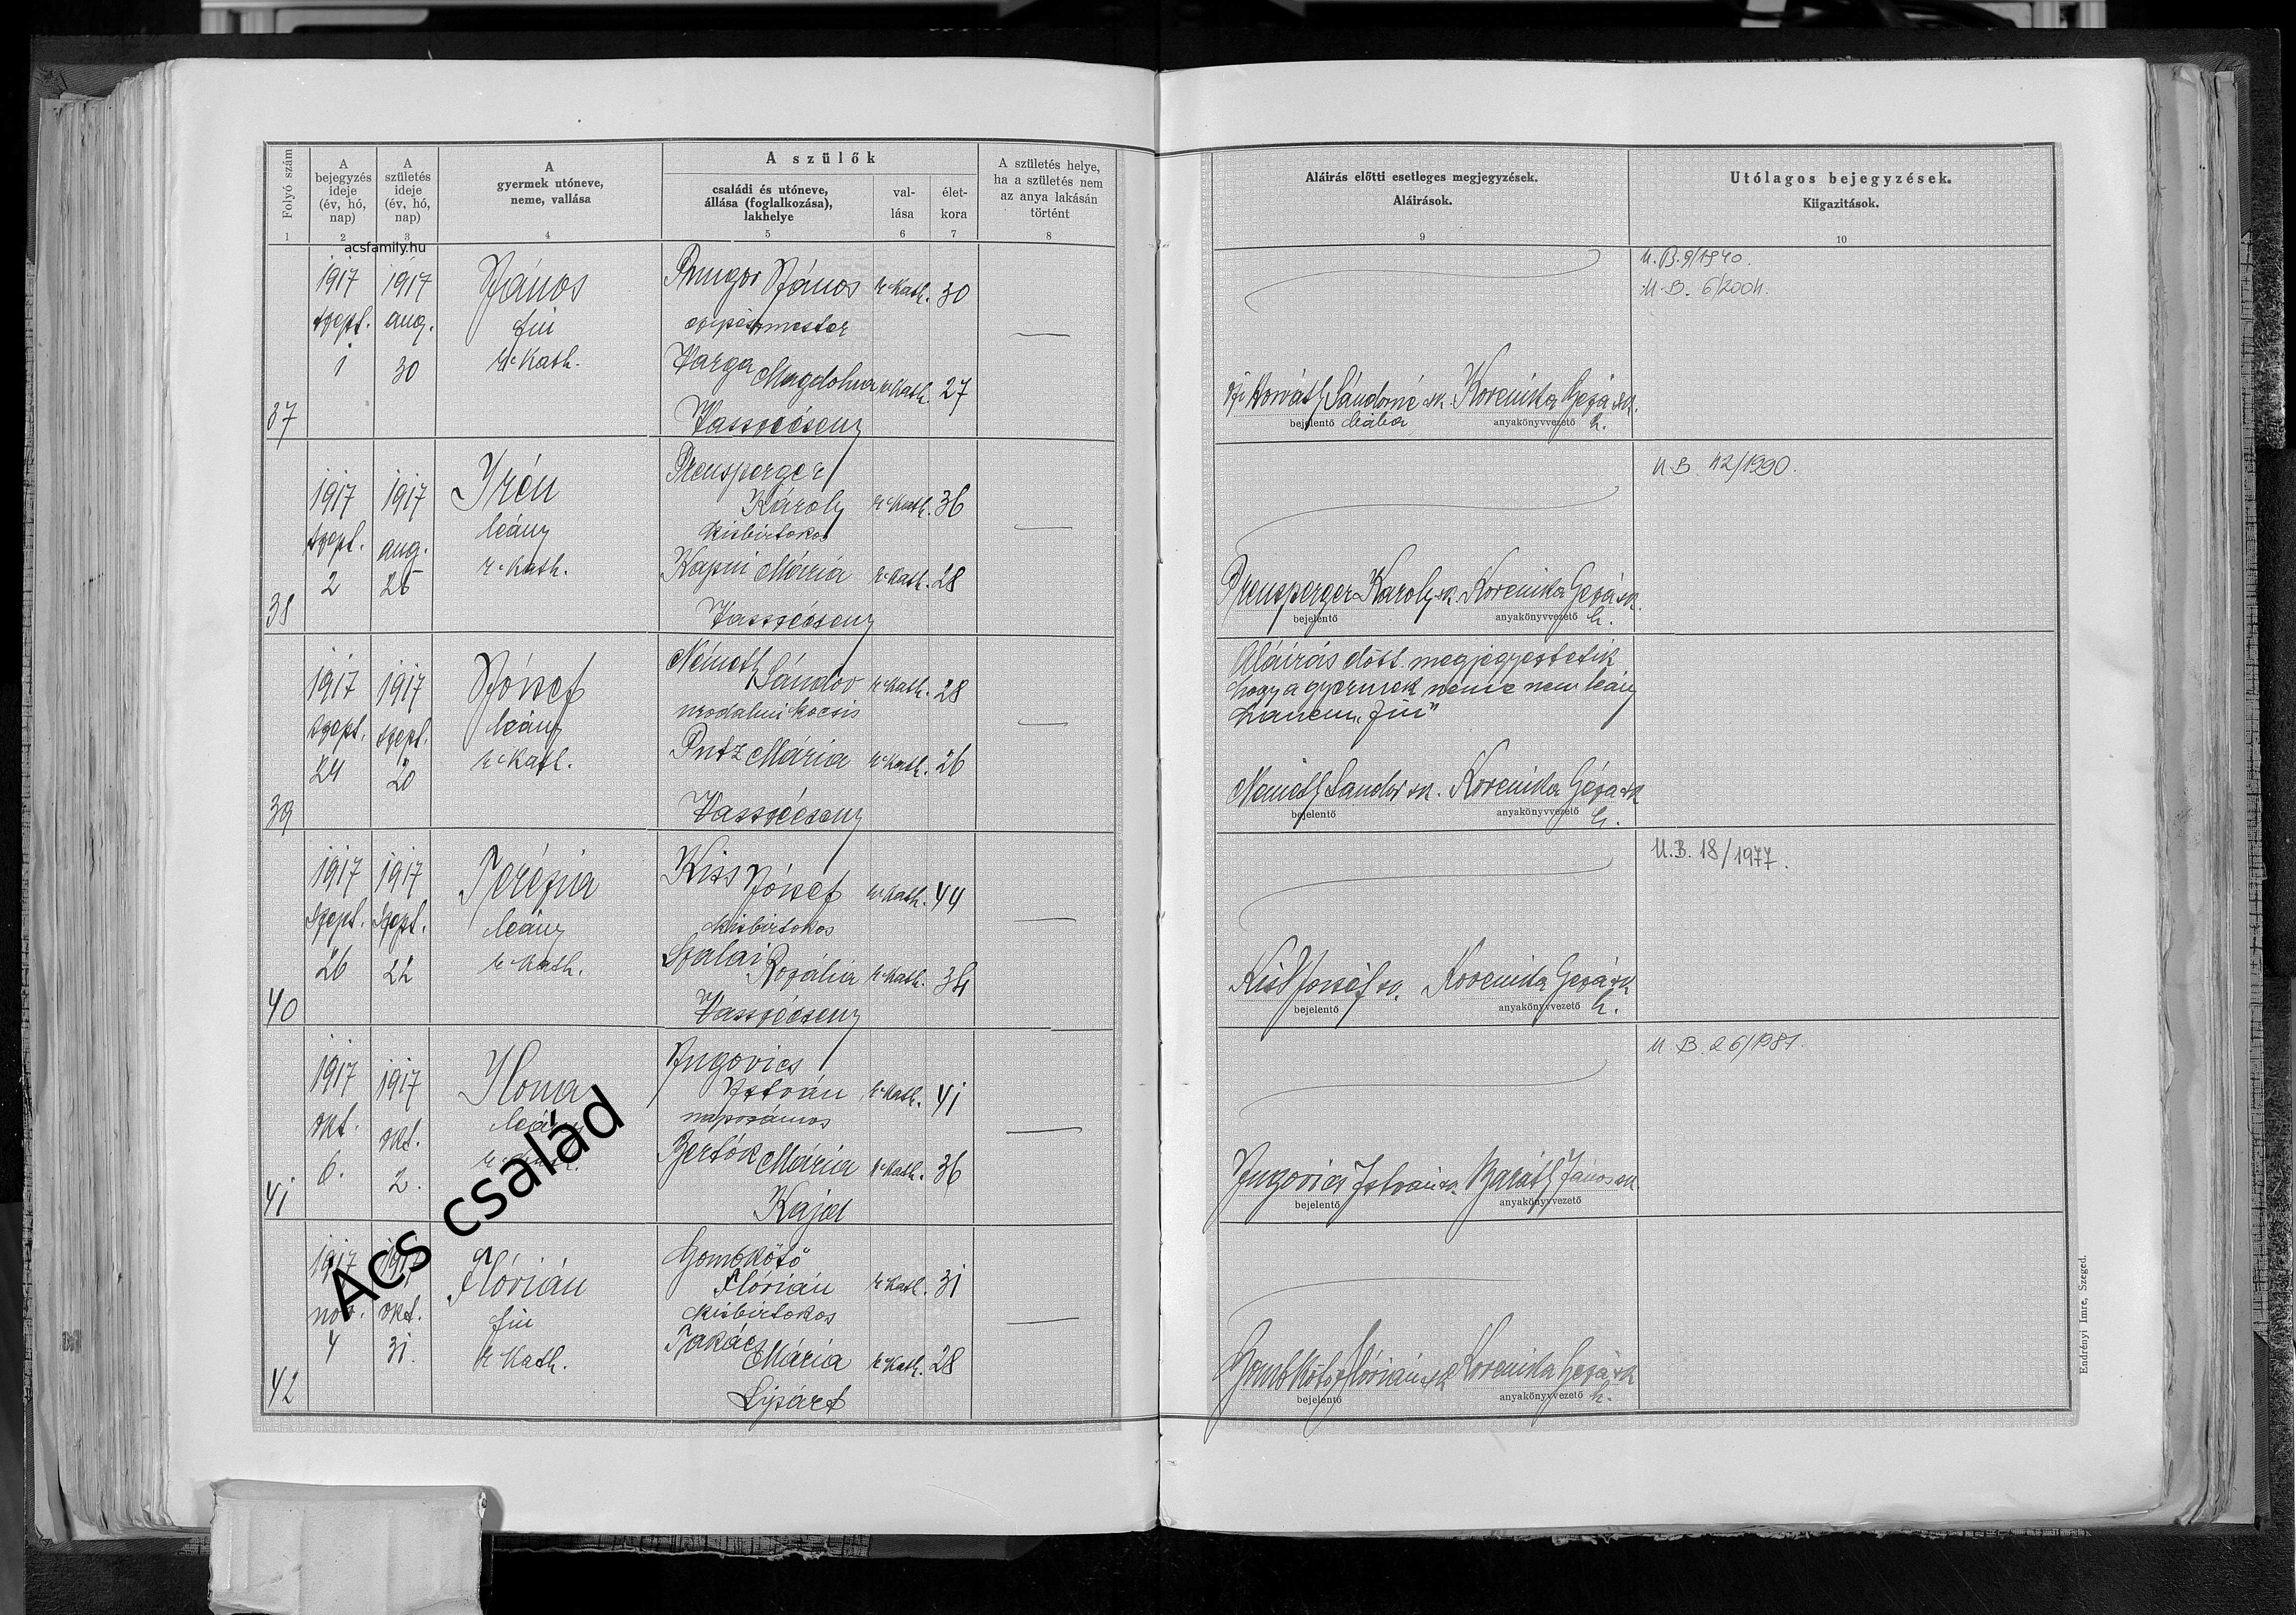 Folyó szám
A bejegyzés ideje (év, hó, nap)
A születés ideje (év, hó, nap)
A gyermek utóneve, neme, vallása
A szülők
családi és utóneve, állása (foglalkozása), lakhelye
val-lása
élet-kora
A születés helye, ha a születés nem az anya lakásán történt
Aláirás előtti esetleges megjegyzések.
Aláirások.
Utólagos bejegyzések.
Kiigazitások.
1 2 3 4 5 6 7 8 9 10
acsfamily.hu
37
1917 szept. 1
1917 aug. 30
János
fiu
r. kath.
János r. kath. 30
Varga Magdolna r. kath. 27
Vasszécseny
U.B. 9/1940.
U.B. 6/2004.
Horváth Sándorné sk. Korenika Géza sk.
bejelentő Mária anyakönyvvezető h.
38
1917 szept. 2
1917 aug. 26
Irén
leány
r. kath.
Prensperger
Károly r. kath. 36
kisbirtokos
Kapui Mária r. kath. 28
Vasszécseny
U.B. 42/1990.
Prensperger Karoly sk. Korenika Géza sk.
bejelentő anyakönyvvezető h.
39
1917 szept. 24
1917 szept. 20
József
leány
r. kath.
Németh
Sándor r. kath. 28
uradalmi kocsis
Putz Mária r. kath. 26
Vasszécseny
Aláirás előtt megjegyeztetik
hogy a gyermek neme nem leány
hanem „fiu"
Németh Sandor sk. Korenika Géza sk
bejelentő anyakönyvvezető h.
40
1917 szept. 26
1917 szept. 22
Terézia
leány
r. kath.
Kiss József r. kath. 44
kisbirtokos
Szalai
Rozália r. kath. 34
Vasszécseny
U.B. 18/1977.
Kiss József sk. Korenika Géza sk
bejelentő anyakönyvvezető h.
41
1917 okt. 6.
1917 okt. 2.
Ilona
leány
r. kath.
Jugovics
István r. kath. 41
napszámos
Bertók Mária r. kath. 36
Kajd
U.B. 26/1981.
Jugovics István sk. Baráth János sk
bejelentő anyakönyvvezető
42
1917 nov. 4
1917 okt. 31.
Flórián
fiu
r. kath.
Gombkötő
Flórián r. kath. 31
kisbirtokos
Takács
Mária r. kath. 28
Lipárt
Gombkötő Flórián sk Korenika Géza sk
bejelentő anyakönyvvezető h.
Acs család
Endrényi Imre, Szeged.